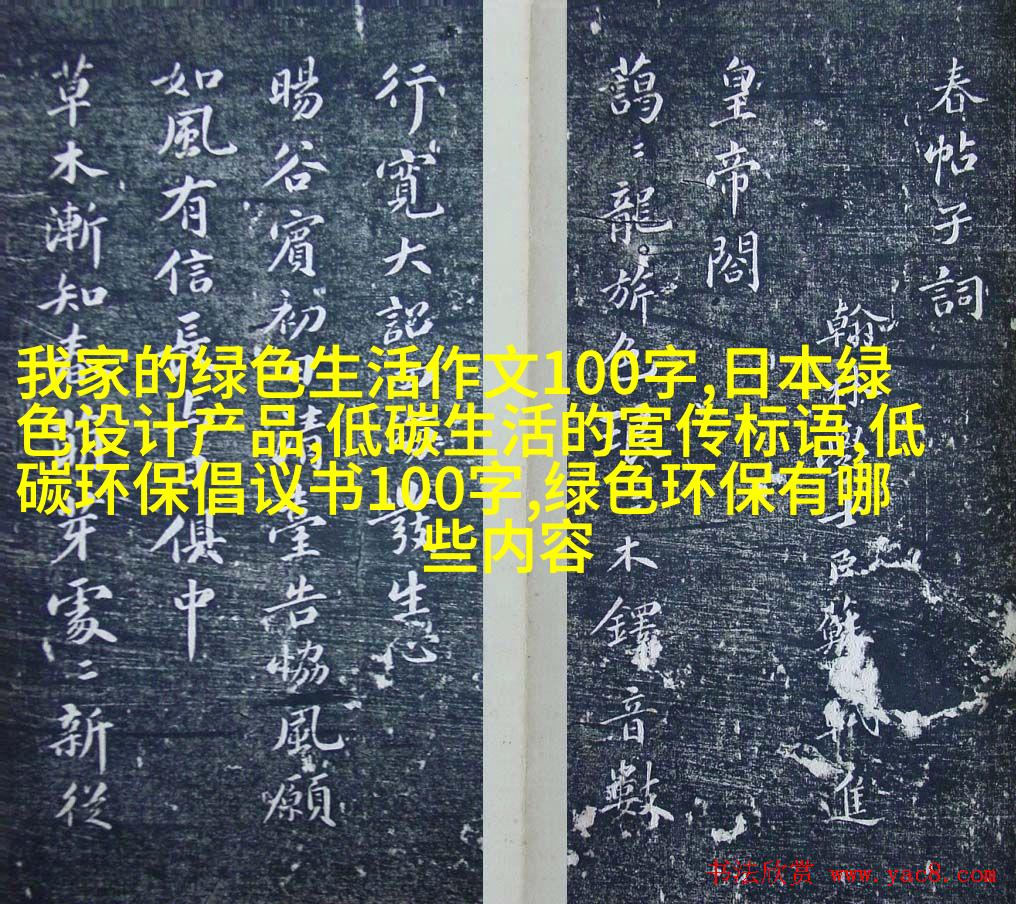 春帖子詞
翰林學士臣蘇軾進
皇帝閤
藹〻龍旂色木鐸音數
行寬大詔發生心
暘谷賓初日清臺告協風願
如風有信長與日俱中
草木漸知春芽處〻新從
我家的绿色生活作文100字,日本绿
色设计产品,低碳生活的宣传标语,低
碳环保倡议书100字,绿色环保有哪
些内容
书法欣赏 www.yac8.com